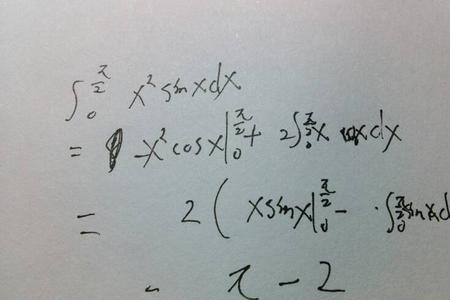 ∫₀^(π/2) x² sinx dx
= -x² cosx |₀^(π/2) + 2∫₀^(π/2) x cosx dx
= 2( x sinx |₀^(π/2) - ∫₀^(π/2) sinx d
= π - 2